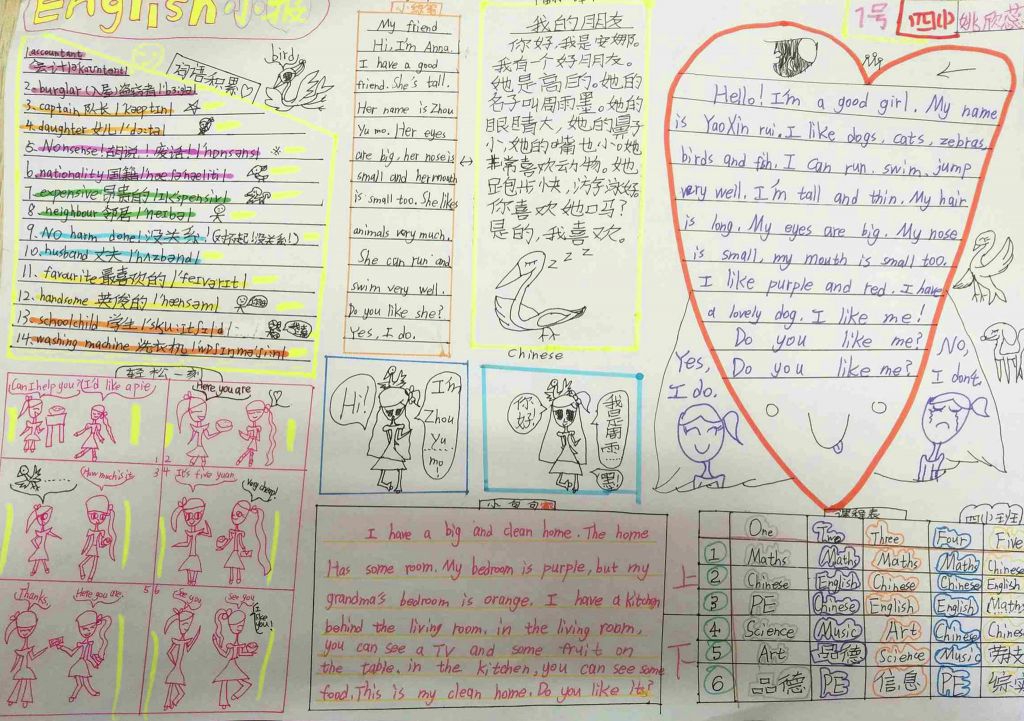 English 小报
1号 四小 姚欣蕊
单语积累
bird
1. accountant
会计 /əkauntənt/
2. burglar (入屋)盗窃者 /bɜ:glə/
3. captain 队长 /kæptɪn/
4. daughter 女儿 /dɔ:tə/
5. Nonsense! 胡说！废话! /nɒnsəns/
6. nationality 国籍 /næʃənæliti/
7. expensive 昂贵的 /ɪkspensiv/
8. neighbour 邻居 /neɪbə/
9. NO harm done! 没关系 (对不起!没关系!)
10. husband 丈夫 /hʌzbənd/
11. favourite 最喜欢的 /feɪvərɪt/
12. handsome 英俊的 /hænsəm/
13. schoolchild 学生
14. washing machine 洗衣机
My friend
Hi, I'm Anna.
I have a good
friend. She's tall.
Her name is Zhou
Yu mo. Her eyes
are big, her nose is
small and her mouth
is small too. She likes
animals very much.
She can run and
swim very well.
Do you like she?
Yes, I do.
我的朋友
你好，我是安娜。
我有一个好朋友。
她是高的。她的
名字叫周雨墨。她的
眼睛大，她的鼻子
小，她的嘴也小。她
非常喜欢动物。她
跑步快，游泳好。
你喜欢她吗？
是的，我喜欢。
z z z
Chinese
Hello! I'm a good girl. My name
is YaoXin rui. I like dogs, cats, zebras,
birds and fish. I can run. swim. jump
very well. I'm tall and thin. My hair
is long. My eyes are big. My nose
is small, my mouth is small too.
I like purple and red. I have
a lovely dog. I like me!
Do you like me?
Do you like me?
Yes,
I do.
No,
I don't.
轻松一刻
Can I help you? I'd like a pie,
Here you are
How much is it
It's five yuan.
Very cheap!
Thanks.
Here you are.
See you
See you
I like you!
1 2 3 4 5 6
Hi!
I'm
Zhou
Yu
mo!
你好!
我是周雨……墨!
I have a big and clean home. The home
Has some room. My bedroom is purple, but my
grandma's bedroom is orange. I have a kitchen
behind the living room. in the living room,
you can see a TV and some fruit on
the table. in the kitchen, you can see some
food. This is my clean home. Do you like Its?
课程表
One Two Three Four Five
上
1 Maths Maths Maths Maths Chinese
2 Chinese English Chinese Chinese English
3 PE Chinese English English Maths
下
4 Science Music Art Chinese Chinese
5 Art 品德 Science Music 劳技
6 品德 PE 信息 PE 综实